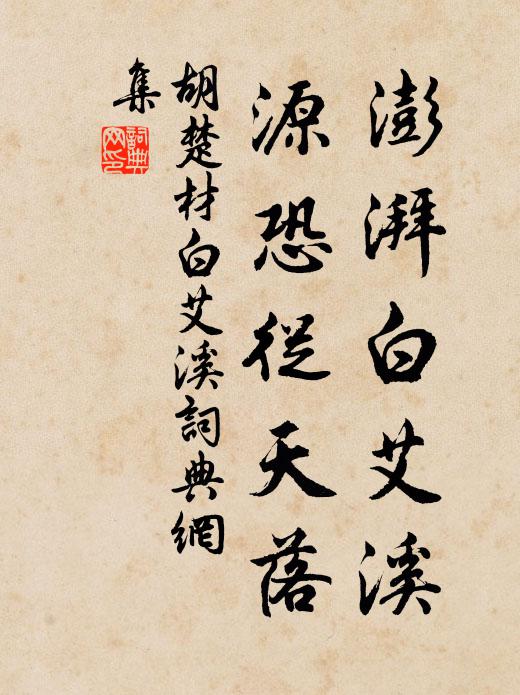 澎湃白艾溪
源恐從天落
胡楚材白艾溪詞典網
集
詞典
网印